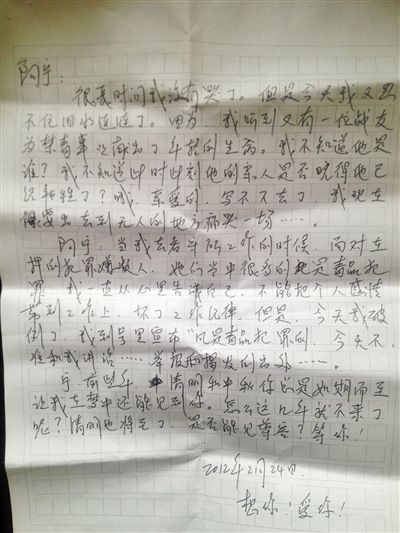 阿宇:
很长时间我没有哭了。但是今天我又忍
不住泪水涟涟了。因为我听到又有一位战友
为禁毒事业献出了年轻的生命。我不知道他是
谁?我不知道此时此刻他的亲人是否晓得他已
经牺牲了?哦,亲爱的,写不下去了,我现在
要出去到无人的地方痛哭一场……。
阿宇:当我去看守所工作的时候,面对在
押的犯罪嫌疑人,她们当中很多的是毒品犯
罪,我一直从心里告诫自己,不能把个人感情
带到工作上,坏了工作纪律。但是,今天我破
例了,我到号里宣布“凡是毒品犯罪的,今天不
准和我讲话……举报和揭发的去外……。
宇,前些年,清明和中秋你总是如期而至
让我在梦中还能见到你。怎么这几年就不来了
呢?清明也将至了,是否能见尊容?等你!
2012年2月24日
想你!爱你!